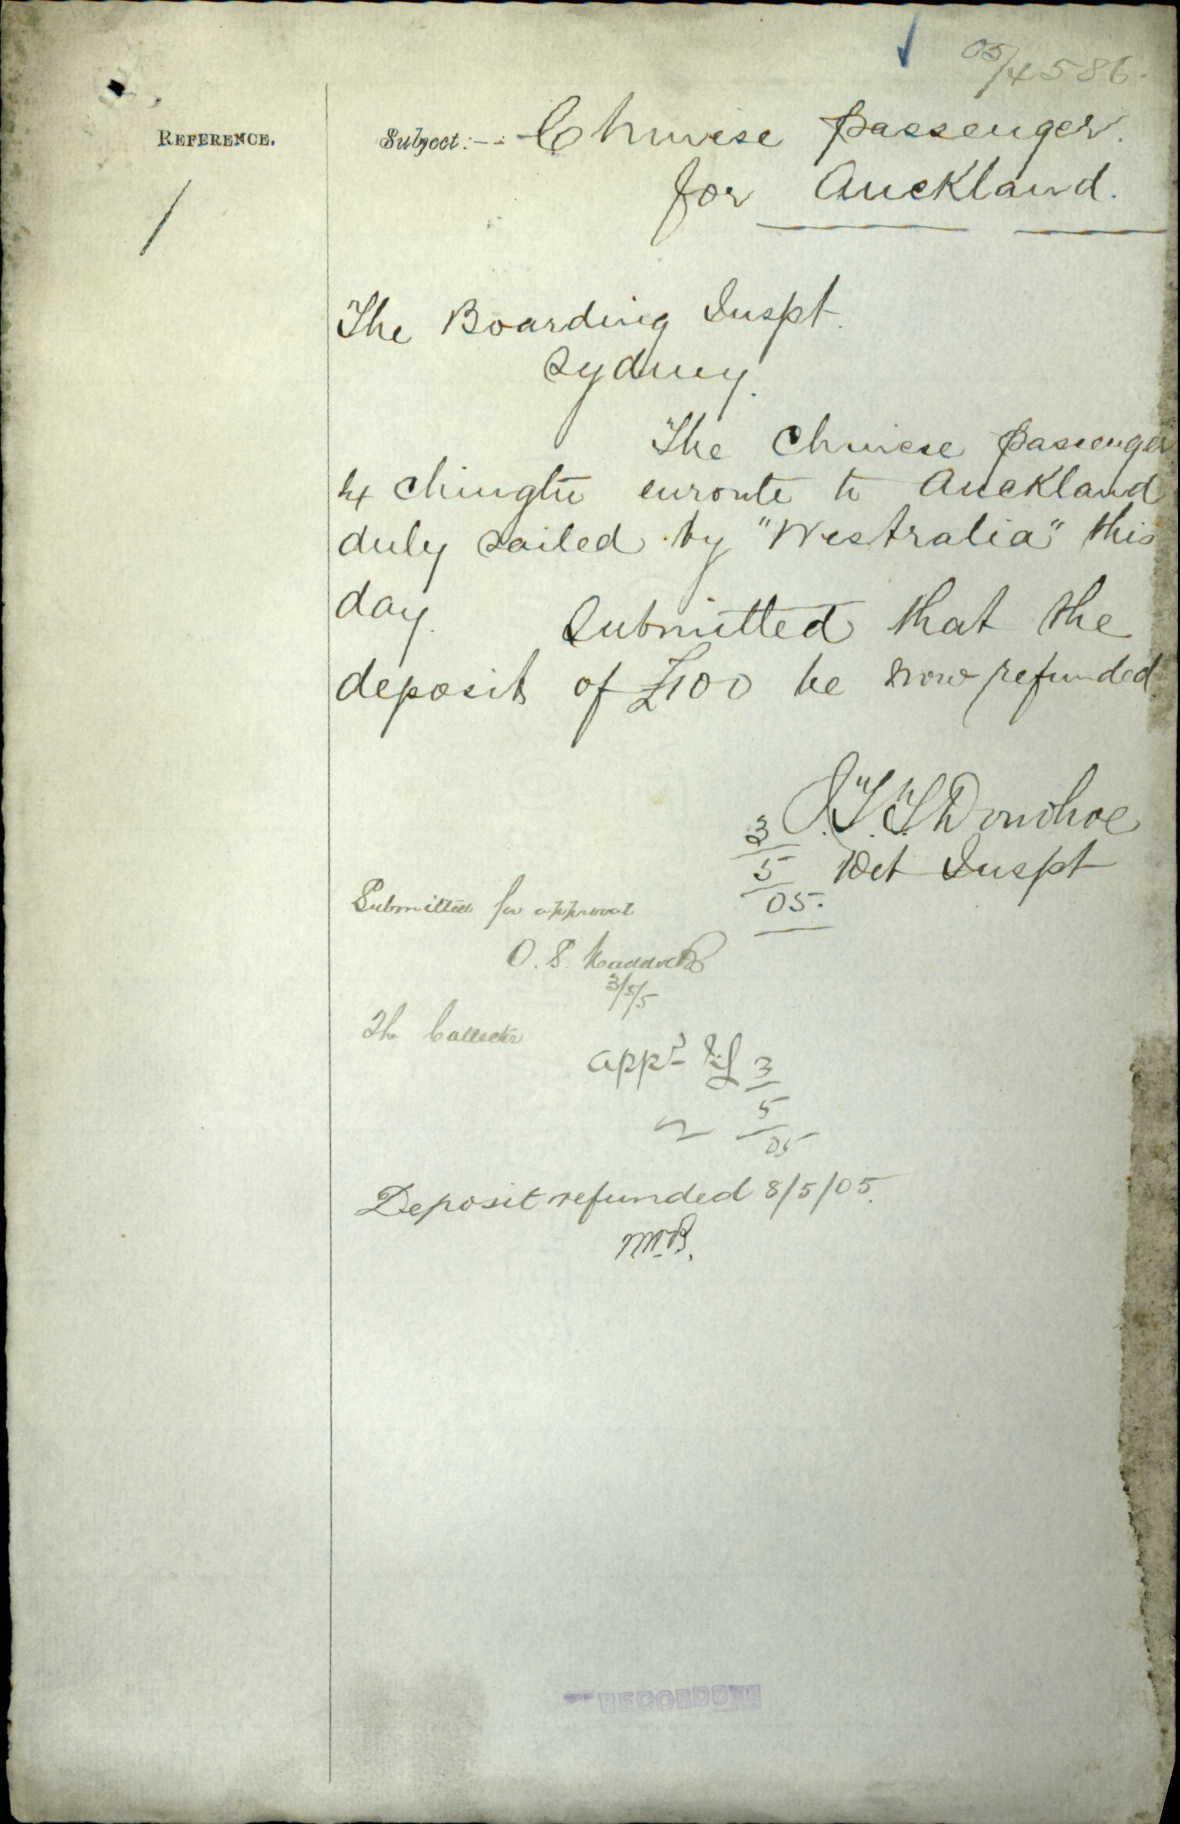 05/4586.
REFERENCE.
Subject:— Chinese passenger.
for Auckland.
The Boarding Inspt.
Sydney.
The Chinese passenger
ex Chingtu enroute to Auckland
duly sailed by "Westralia" this
day.
Submitted that the
deposit of £100 be now refunded
J.T.T. Donohoe
Det Inspt
3/5/05.
Submitted for approval
O. S. Maddocks
3/5/5
The Collector
appd
3/5/05
Deposit refunded 8/5/05.
McR.
RECORDS